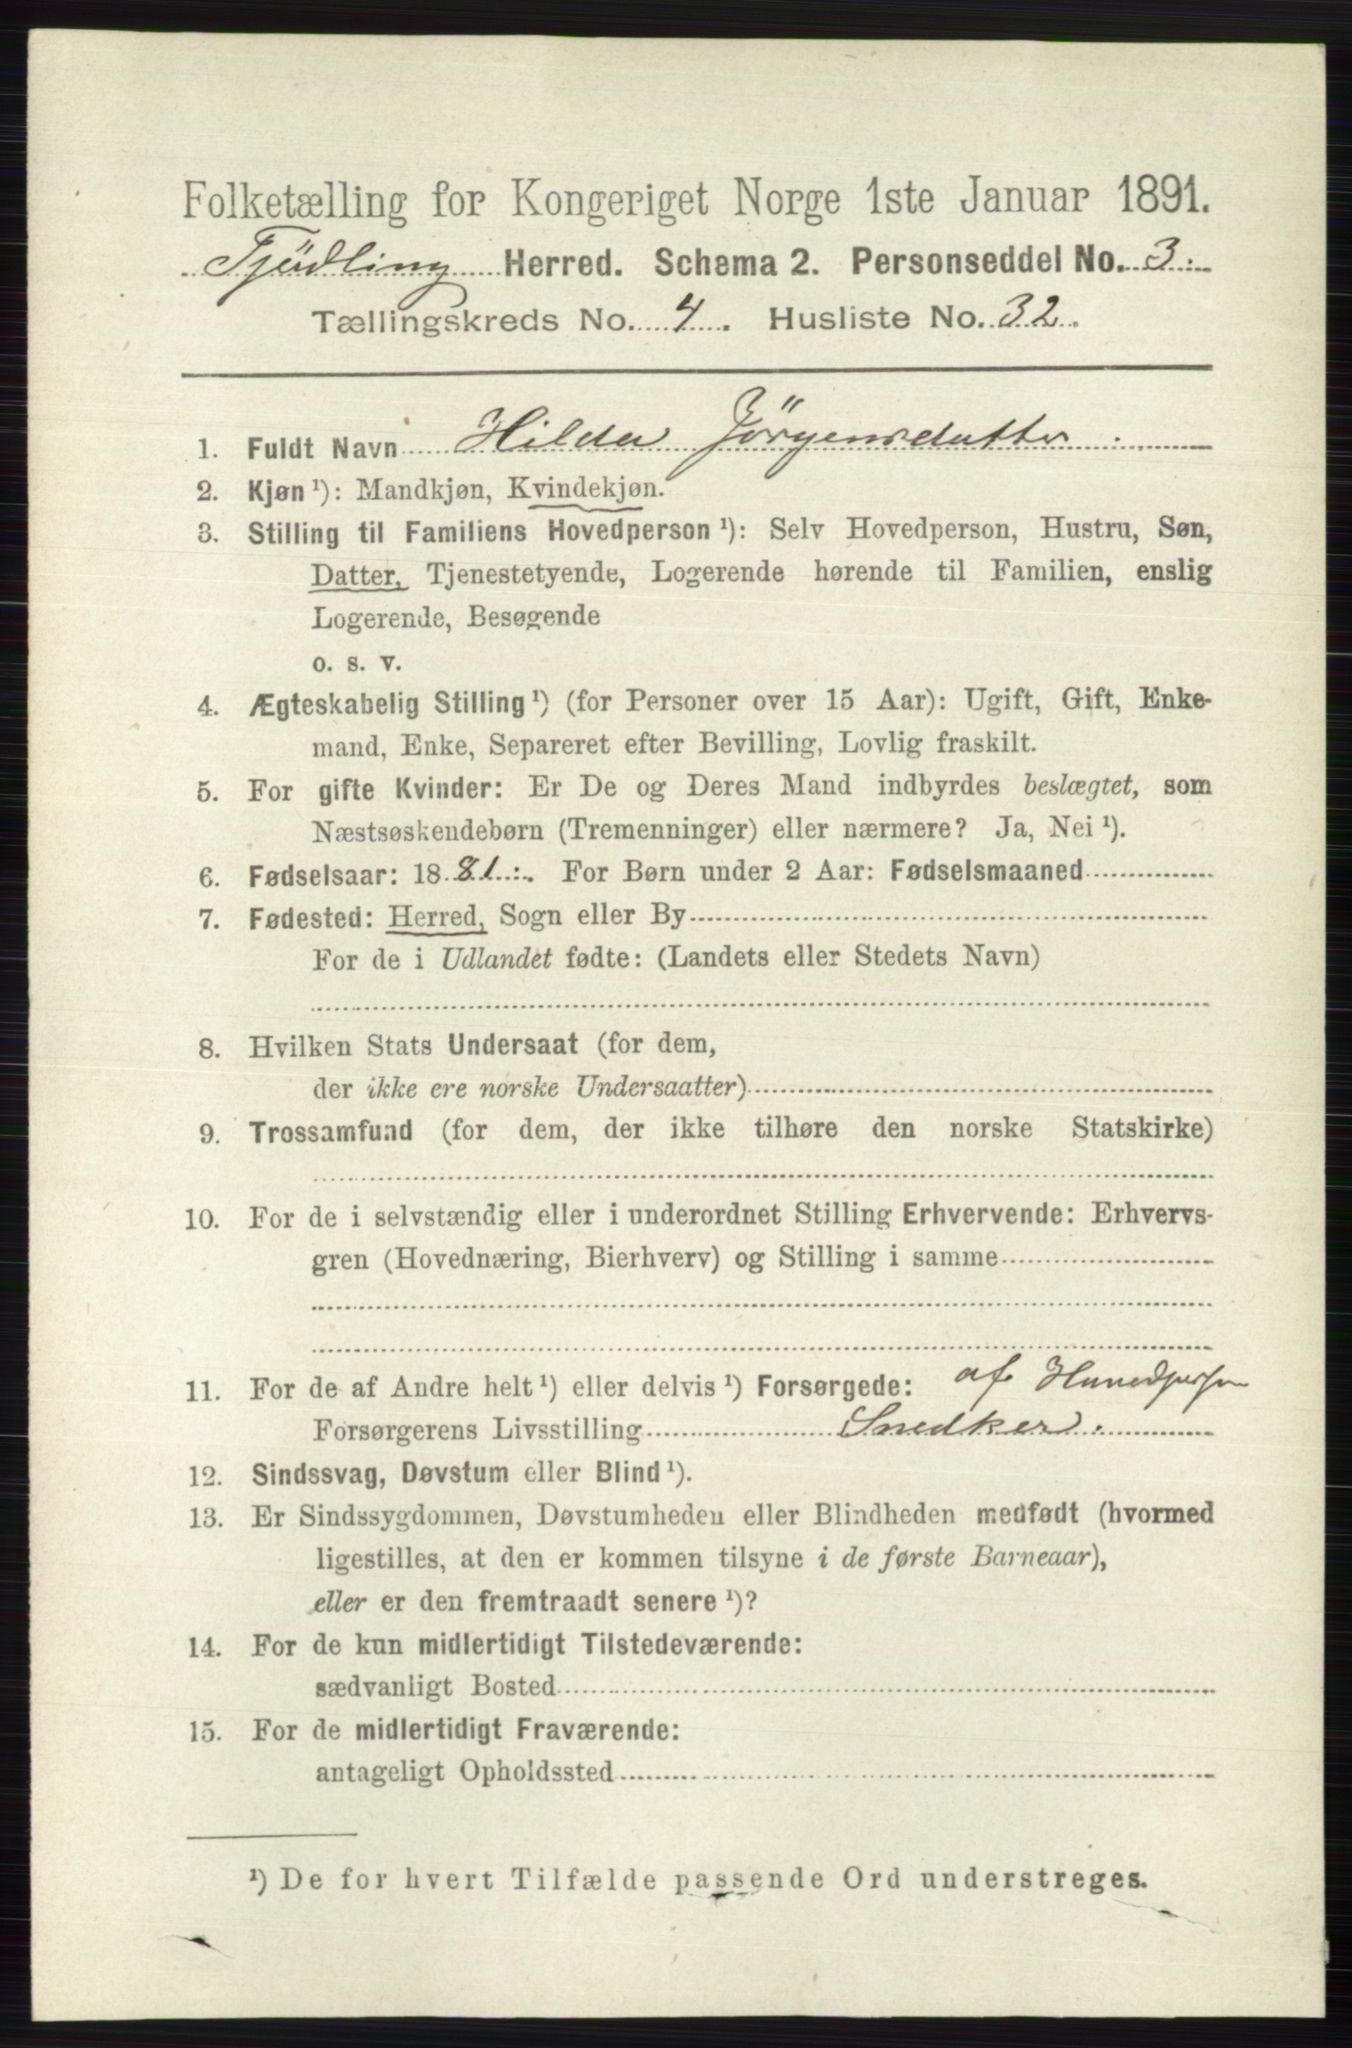 Folketælling for Kongeriget Norge 1ste Januar 1891.
Tjödling Herred. Schema 2. Personseddel No. 3.
Tællingskreds No. 4. Husliste No. 32.
1. Fuldt Navn Hilda Jörgensdatter.
2. Kjøn ¹): Mandkjøn, Kvindekjøn.
3. Stilling til Familiens Hovedperson ¹): Selv Hovedperson, Hustru, Søn,
Datter, Tjenestetyende, Logerende hørende til Familien, enslig
Logerende, Besøgende
o. s. v.
4. Ægteskabelig Stilling ¹) (for Personer over 15 Aar): Ugift, Gift, Enke-
mand, Enke, Separeret efter Bevilling, Lovlig fraskilt.
5. For gifte Kvinder: Er De og Deres Mand indbyrdes beslægtet, som
Næstsøskendebørn (Tremenninger) eller nærmere? Ja, Nei ¹).
6. Fødselsaar: 1881. For Børn under 2 Aar: Fødselsmaaned
7. Fødested: Herred, Sogn eller By
For de i Udlandet fødte: (Landets eller Stedets Navn)
8. Hvilken Stats Undersaat (for dem,
der ikke ere norske Undersaatter)
9. Trossamfund (for dem, der ikke tilhøre den norske Statskirke)
10. For de i selvstændig eller i underordnet Stilling Erhvervende: Erhvervs-
gren (Hovednæring, Bierhverv) og Stilling i samme
11. For de af Andre helt ¹) eller delvis ¹) Forsørgede: af Hovedperson
Forsørgerens Livsstilling Snedker.
12. Sindssvag, Døvstum eller Blind ¹).
13. Er Sindssygdommen, Døvstumheden eller Blindheden medfødt (hvormed
ligestilles, at den er kommen tilsyne i de første Barneaar),
eller er den fremtraadt senere ¹)?
14. For de kun midlertidigt Tilstedeværende:
sædvanligt Bosted
15. For de midlertidigt Fraværende:
antageligt Opholdssted
¹) De for hvert Tilfælde passende Ord understreges.